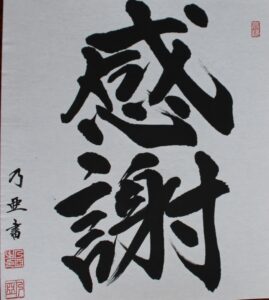 感謝
乃亜書